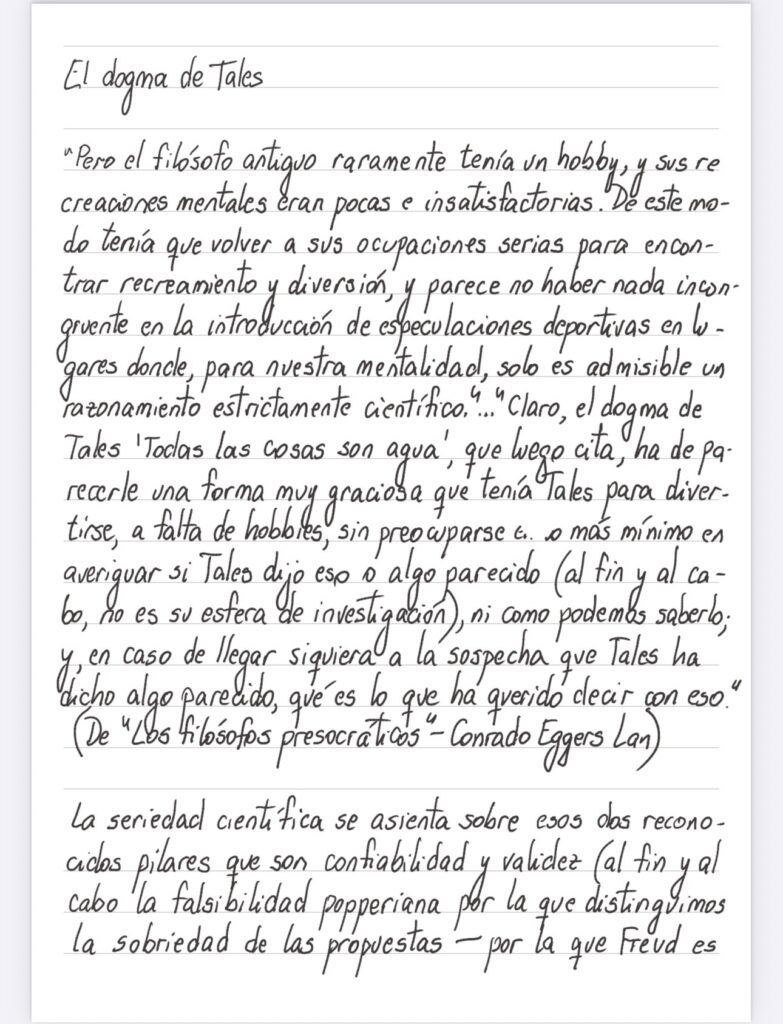 El dogma de Tales
"Pero el filósofo antiguo raramente tenía un hobby, y sus re
creaciones mentales eran pocas e insatisfactorias. De este mo-
do tenía que volver a sus ocupaciones serias para encon-
trar recreamiento y diversión, y parece no haber nada incon-
gruente en la introducción de especulaciones deportivas en lu-
gares donde, para nuestra mentalidad, solo es admisible un
razonamiento estrictamente científico."..." Claro, el dogma de
Tales 'Todas las cosas son agua', que luego cita, ha de pa-
recerle una forma muy graciosa que tenía Tales para diver-
tirse, a falta de hobbies, sin preocuparse más mínimo en
averiguar si Tales dijo eso o algo parecido (al fin y al ca-
bo, no es su esfera de investigación), ni como podemos saberlo;
y, en caso de llegar siquiera a la sospecha que Tales ha
dicho algo parecido, qué es lo que ha querido decir con eso."
(De "Los filósofos presocráticos" - Conrado Eggers Lan)
La seriedad científica se asienta sobre esos dos recono-
cidos pilares que son confiabilidad y validez (al fin y al
cabo la falsibilidad popperiana por la que distinguimos
la sobriedad de las propuestas — por la que Freud es